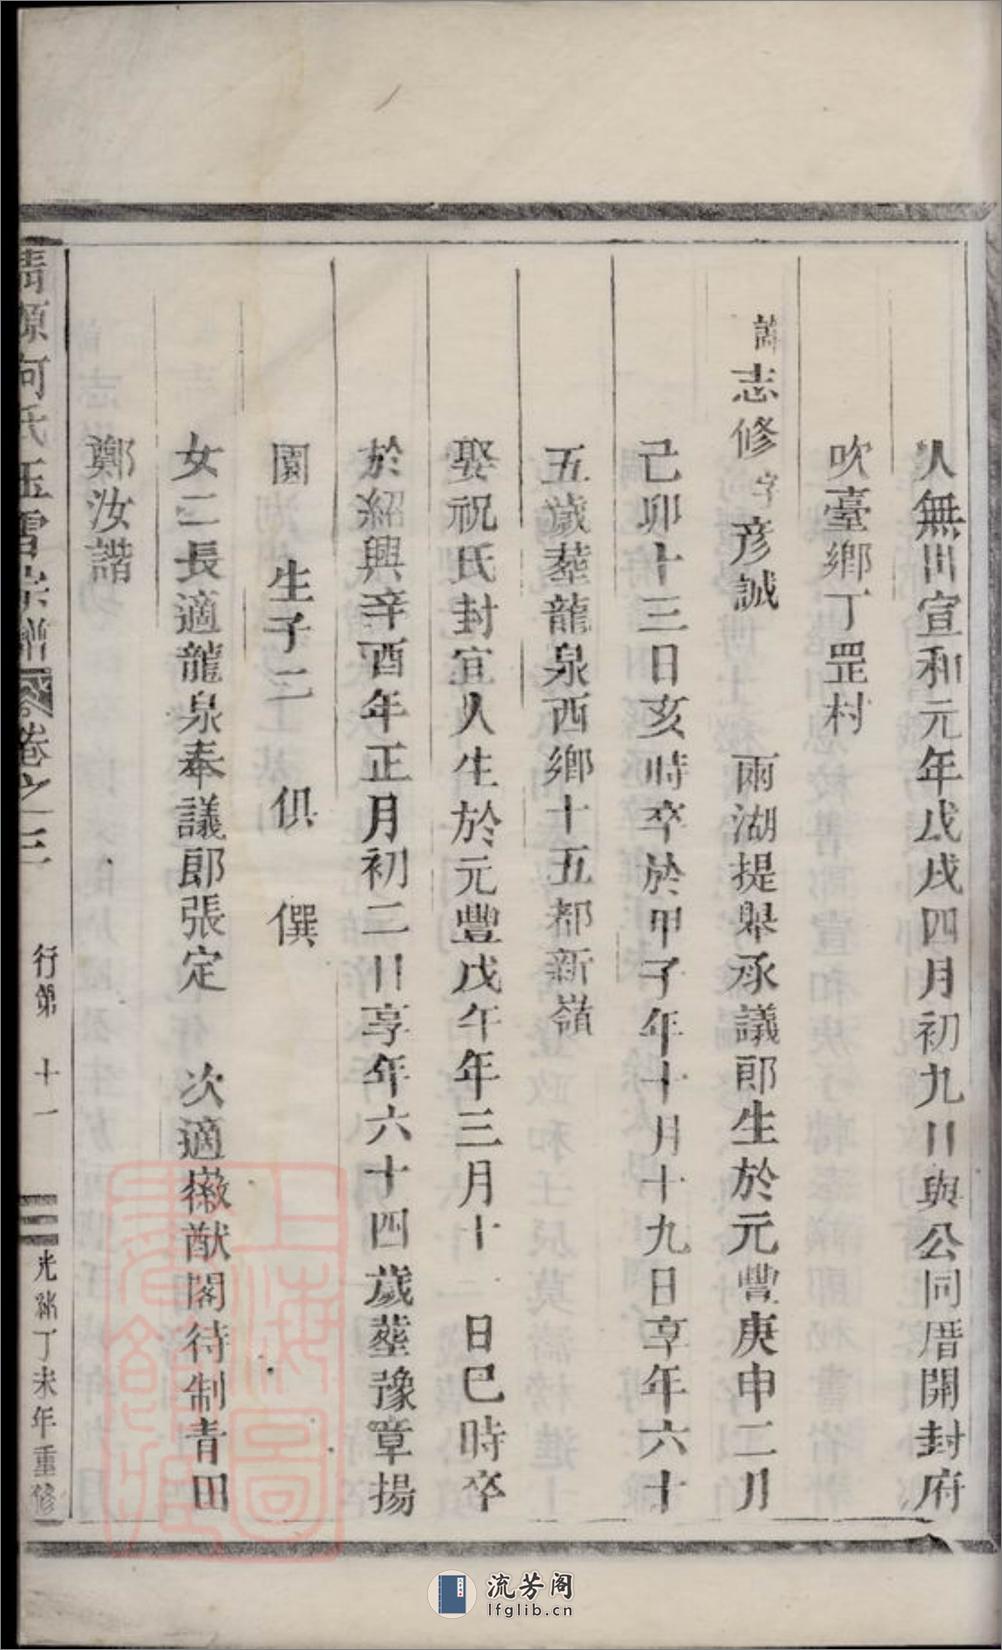 人無川宣和元年戊戌四月初九日與公同厝開封府
吹臺鄉丁罡村
志修字彥誠　雨湖提舉承議郎生於元豐庚申二月
己卯十三日亥時卒於甲子年十月十九日享年六十
五歲葬龍泉西鄉十五都新嶺
娶祝氏封宜人生於元豐戊午年三月十一日巳時卒
於紹興辛酉年正月初二日享年六十四歲葬豫章揚
園　生子二　俱　僎
女二長適龍泉奉議郎張定　次適徽猷閣待制青田
鄭汝諧
清源何氏玉雪宗譜　卷之三　行第　十一　光緒丁未年重修
上海圖書館藏
流芳阁
lfglib.cn